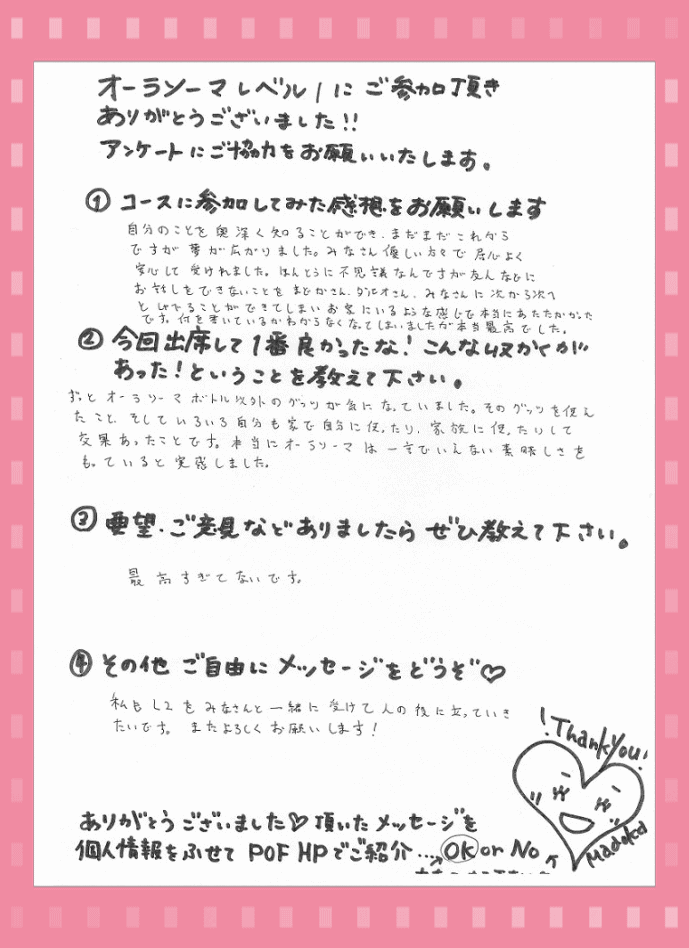 オーラソーマレベル1に ご参加頂き
ありがとうございました!!
アンケートにご協力をお願いいたします。
① コースに参加してみた感想をお願いします
自分のことを奥深く知ることができ、まだまだこれから
ですが 夢が広がりました。みなさん優しい方々で 居心よく
安心して 受けれました。ほんとうに不思議なんですが友人などに
お話しをできないことを まどかさん、 みなさんに 次から次へ
と しゃべることができてしまい お家にいるような感じで本当にあたたかかった
です。何を書いているかわからなくなってしまいましたが本当最高でした。
② 今回出席して1番良かったな! こんな収かくが
あった!ということを教えて下さい。
ずっと オーラソーマ ボトル以外のグッツが気になっていました。そのグッツを使ん
たこと、そしていろいろ自分も家で自分に使ったり、家族に使ったりして
効果あったことです。本当にオーラソーマは 一言でいえない素晴しさを
もっていると実感しました。
③ 要望、ご意見などありましたら ぜひ教えて下さい。
最高すぎてないです。
④ その他 ご自由に メッセージをどうぞ♡
私も L2 を みなさんと一緒に 受けて 人の役に立っていき
たいです。 またよろしく お願いします!
!ThankYou!
Madoka
ありがとうございました♡ 頂いたメッセージを
個人情報をふせて POF HPでご紹介...OK or No